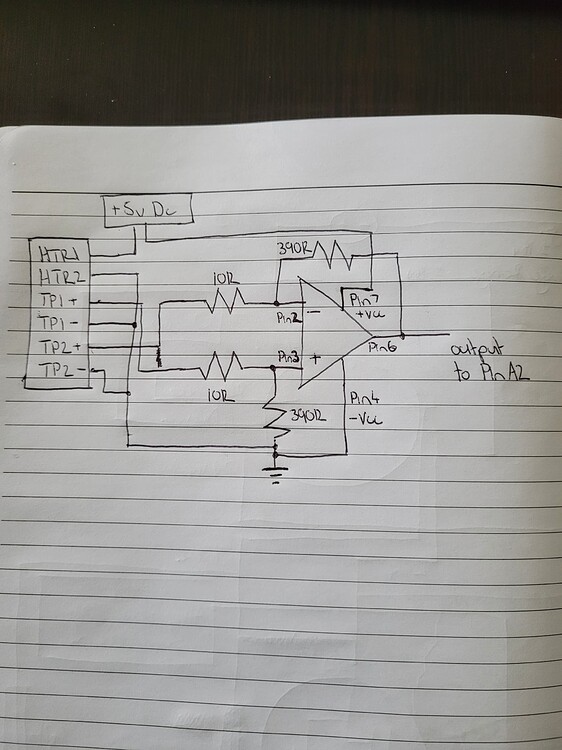 +5v Dc
HTR1
HTR2
TP1+
TP1-
TP2+
TP2-
10R
390R
Pin2
-
Pin7
+Vcc
Pin3
+
Pin6
output
to PinA2
10R
390R
Pin4
-Vcc